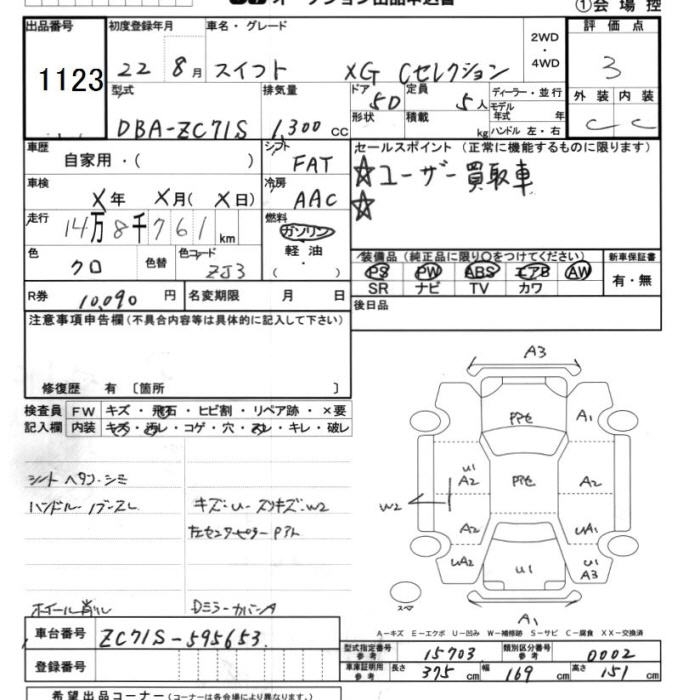 オークション出品申込書
①会場控
出品番号 初度登録年月 車名・グレード 2WD・4WD 評価点
1123 22 8月 スイフト XG Cセレクション 3
型式 排気量 ドア 5D 定員 5人 ディーラー・並行 外装 内装
DBA-ZC71S 1,300cc 形状 積載 kg モデル年式 年 ハンドル 左・右 C C
車歴 シフト セールスポイント (正常に機能するものに限ります)
自家用・( ) FAT ☆ユーザー買取車
車検 冷房 ☆
X年 X月(X日) AAC
走行 燃料
14万8千761km ガソリン
色 色替 色コード 軽油 装備品 (純正品に限り○をつけてください) 新車保証書
クロ ZJ3 ・( ) PS PW ABS エアB AW 有・無
SR ナビ TV カワ
R券 10,090円 名変期限 月 日 後日品
注意事項申告欄 (不具合内容等は具体的に記入して下さい)
修復歴 有 〔箇所 〕
検査員 FW キズ・飛石・ヒビ割・リペア跡・×要
記入欄 内装 キズ・汚レ・コゲ・穴・スレ・キレ・破レ
シートヘタリ・シミ
ハンドル・ノブスレ キズ・U・スリキズ・W2
左センターピラーPアト
ホイール削ル Dミラーカバーキズ
A3
A1
U1
A2
A2
W2
A2
UA1
UA2
U1
U1
A3
スペア
A1
A-キズ E-エクボ U-凹み W-補修跡 S-サビ C-腐食 XX-交換済
車台番号 ZC71S-595653
型式指定番号 参考 15703 類別区分番号 参考 0002
登録番号 車庫証明用 参考 長さ 375cm 幅 169cm 高さ 151cm
希望出品コーナー (コーナーは各会場により異なります。)